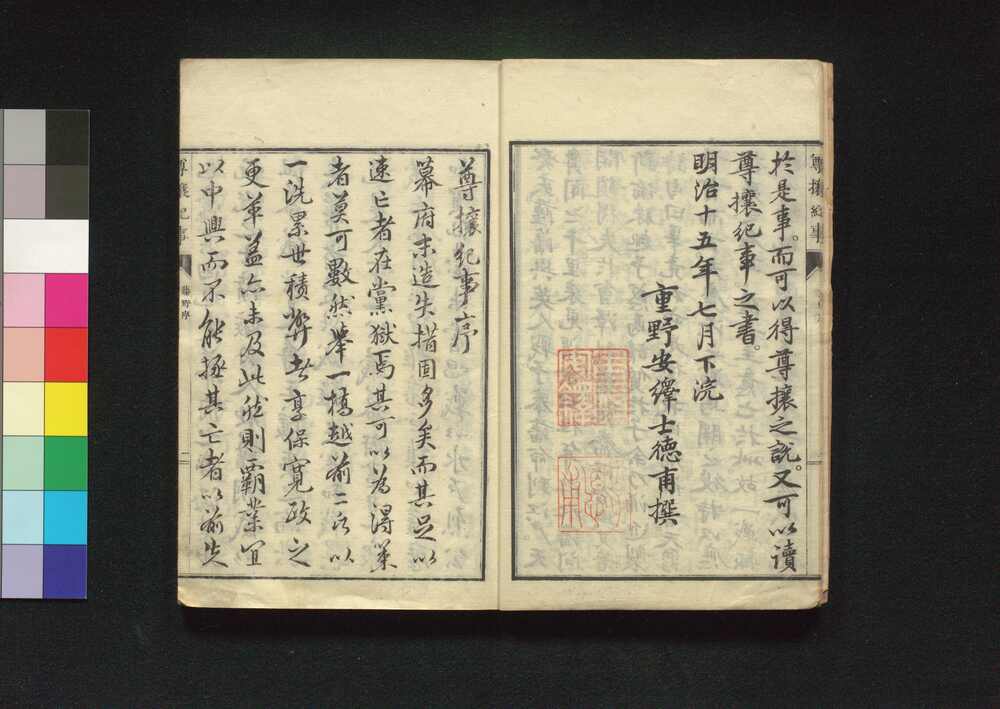 於是事。而可以得尊攘之説。又可以讀
尊攘紀事之書。
明治十五年七月下浣
重野安繹士德甫撰
尊攘紀事序
幕府末造失措固多矣而其足以
速亡者在黨獄焉其可以為得策
者莫可數然舉一橋越前二公以
一洗累世積弊者享保寛政之
更革蓋亦未及此然則霸業宜
以中興而不能拯其亡者以前失
尊攘紀事
藤野序